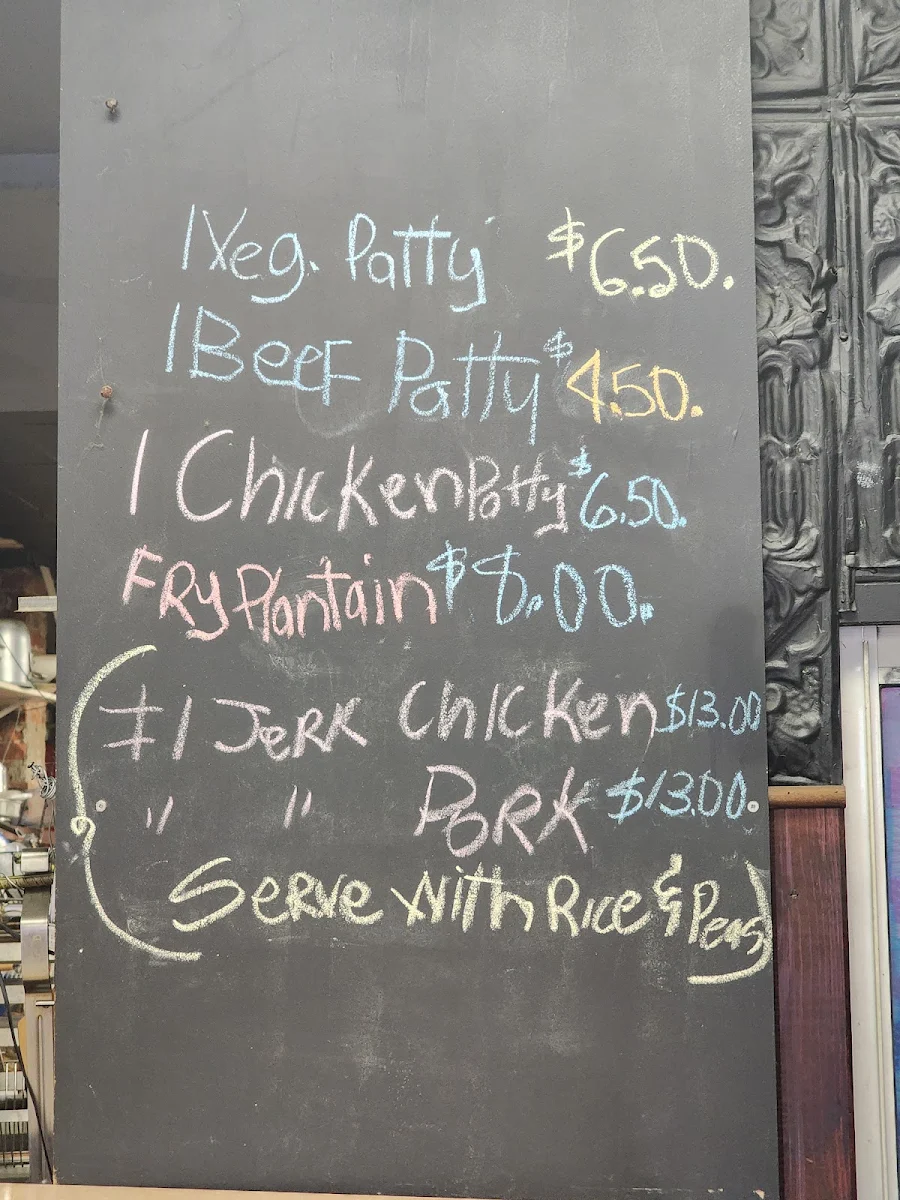 1 Veg. Patty $6.50.
1 Beef Patty $4.50.
1 Chicken Patty $6.50.
Fry Plantain $8.00.
1 Jerk Chicken $13.00
" " Pork $13.00.
Serve with Rice & Peas)